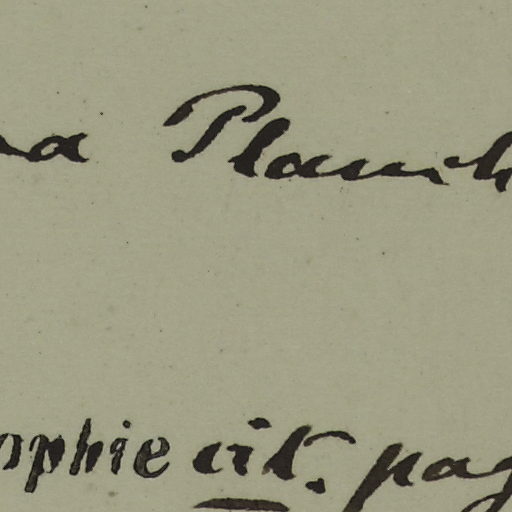 na Planch
ophie cit. pag